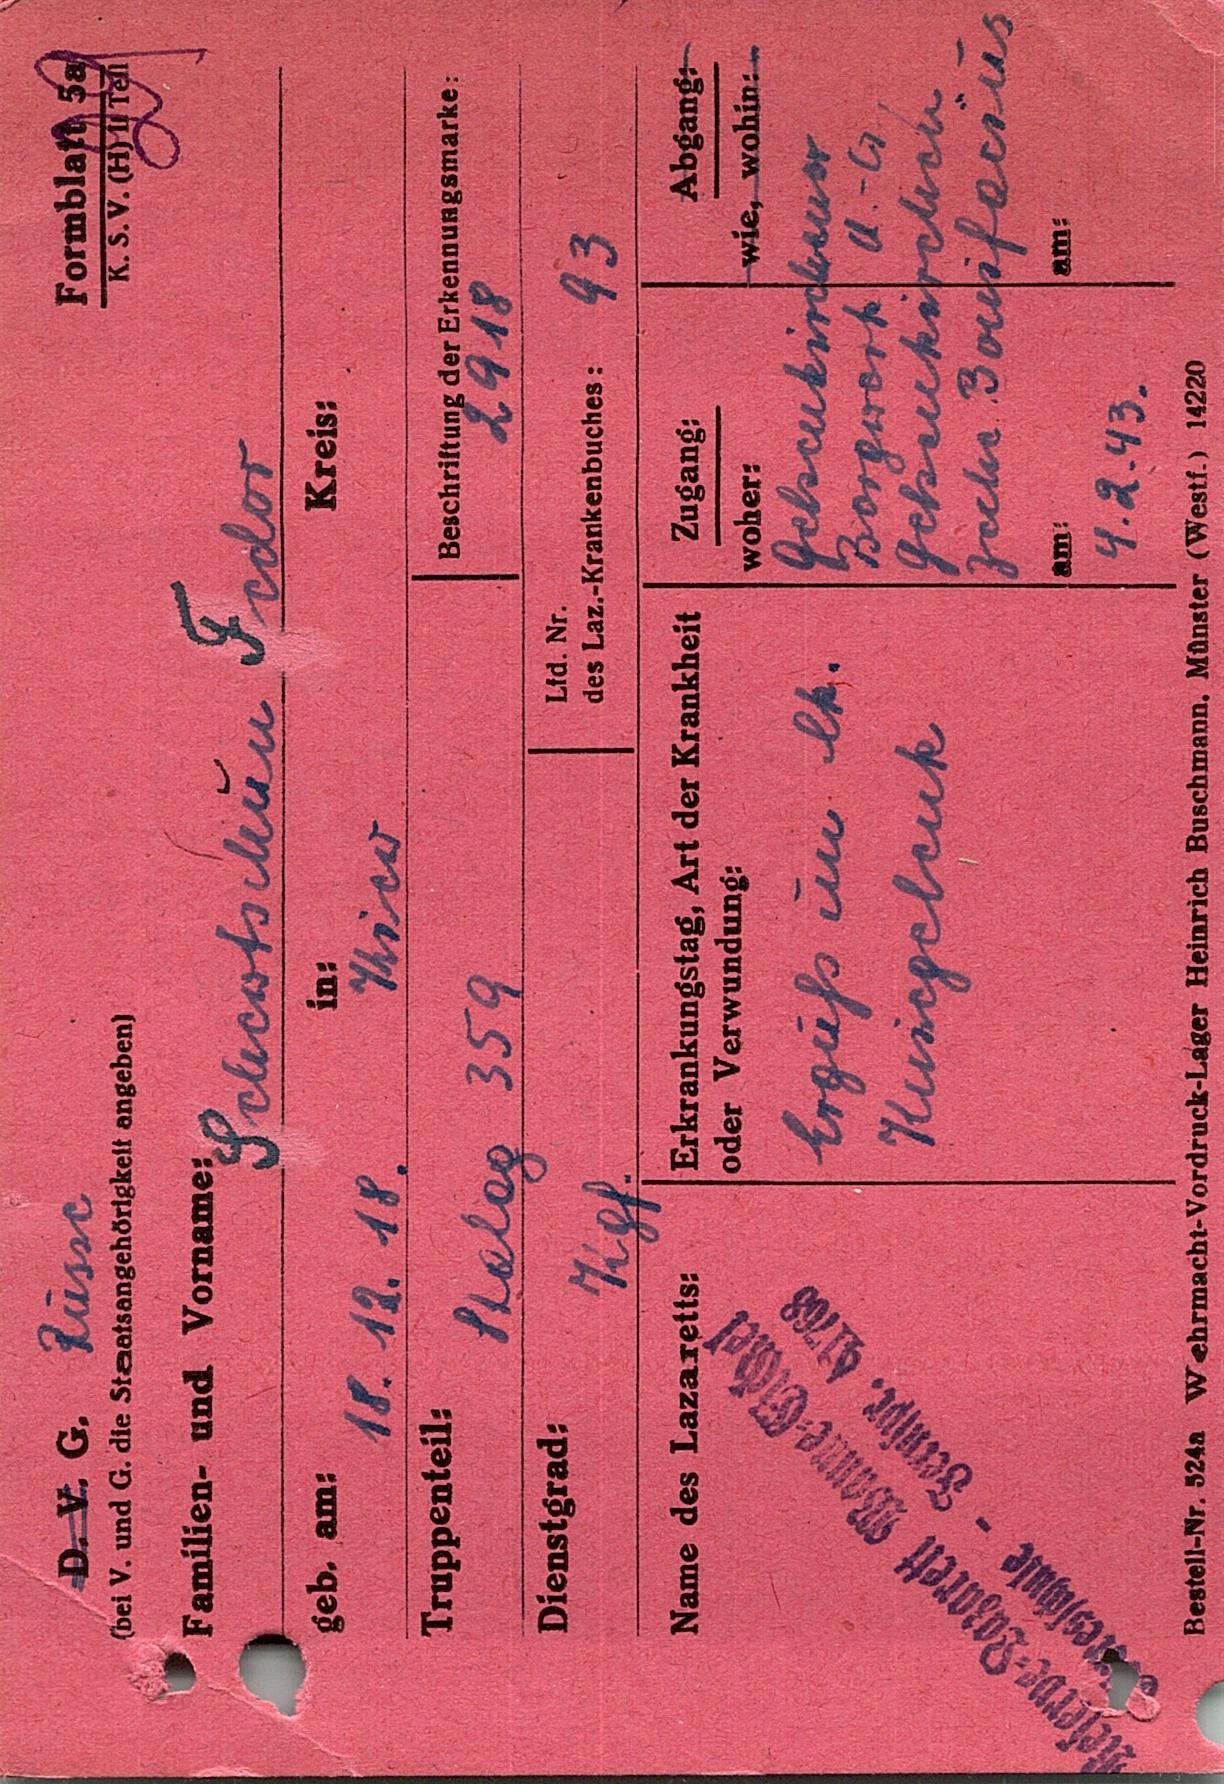 D. V. G. Russe
Formblatt 5a
K. S. V. (H) II Teil
(bei V. und G. die Staatsangehörigkeit angeben)
Familien- und Vorname:
Schewtschun Fedor
geb. am: in: Kreis:
18. 12. 18. Kiew
Truppenteil: Beschriftung der Erkennungsmarke:
Stalag 359 2918
Dienstgrad: Lfd. Nr.
Kgf. des Laz.-Krankenbuches: 93
Name des Lazaretts:
Reserve-Lazarett Wanne-Eickel
- Fernspr. 41768
Erkrankungstag, Art der Krankheit
oder Verwundung:
Erguß im lk.
Kniegelenk
Zugang:
woher:
Gelsenkirchener
Bergwerk A.-G.
Gelsenkirchen
Zeche Bonifacius
am:
4.2.43.
Abgang:
wie, wohin:
am:
Bestell-Nr. 524a Wehrmacht-Vordruck-Lager Heinrich Buschmann, Münster (Westf.) 14220